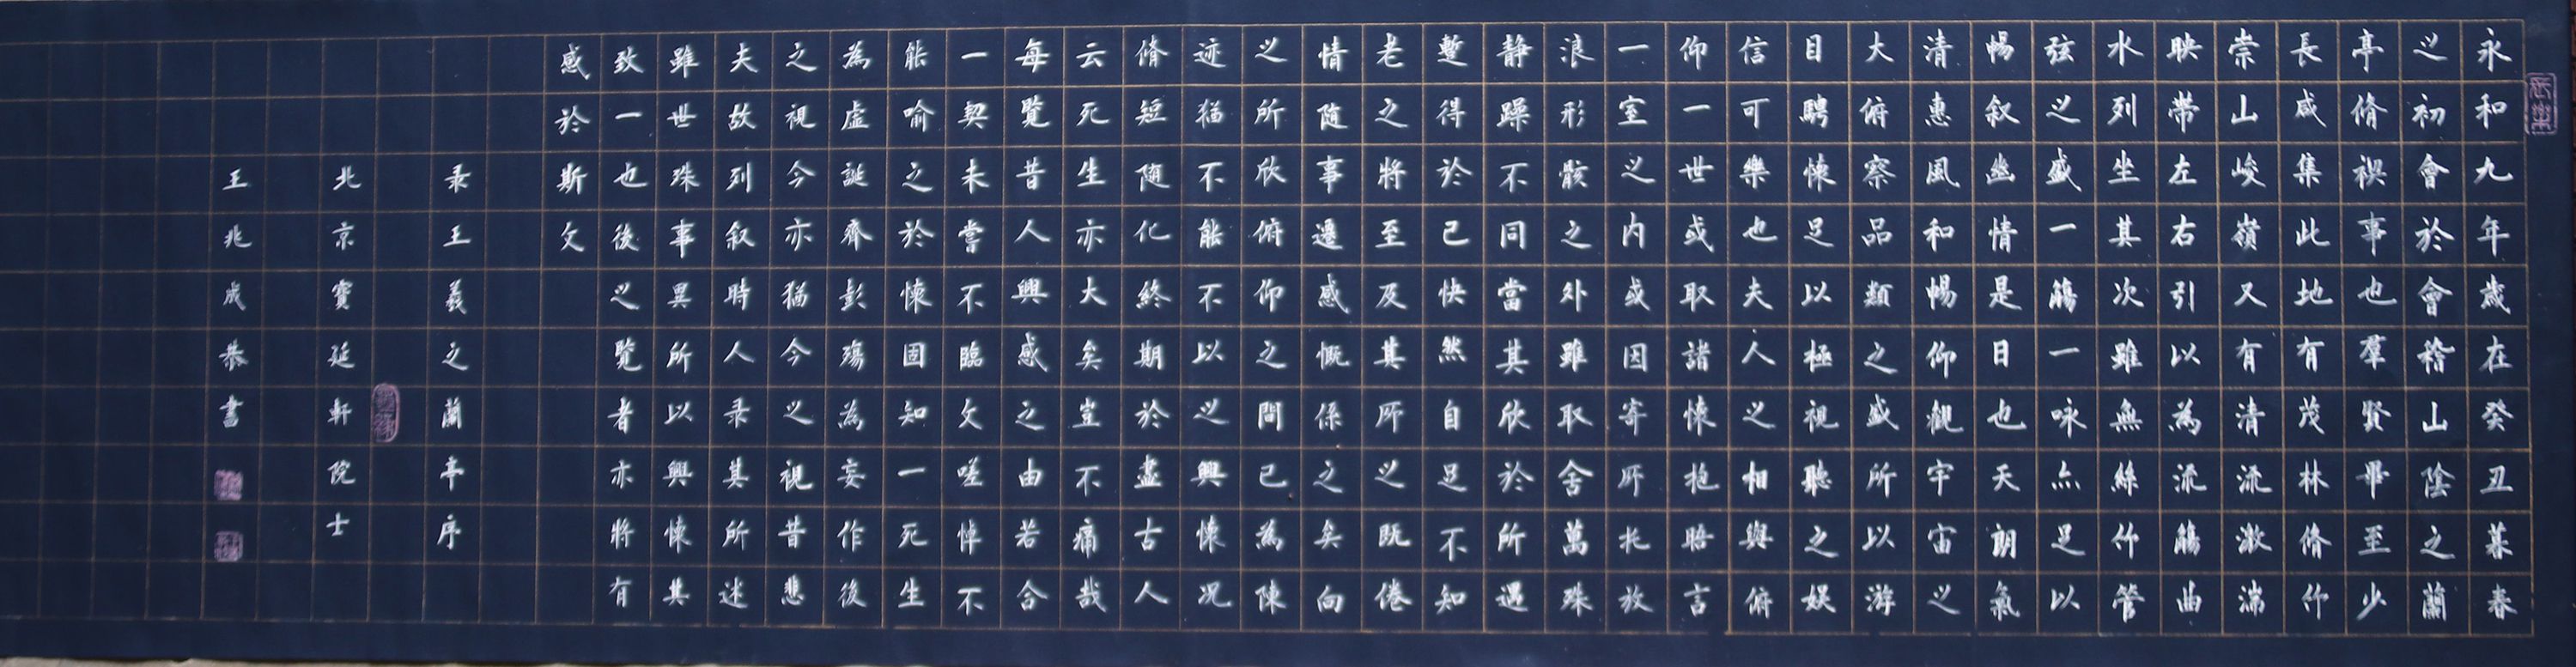 永和九年歲在癸丑暮春
之初會於會稽山陰之蘭
亭脩禊事也羣賢畢至少
長咸集此地有茂林脩竹
崇山峻嶺又有清流激湍
映帶左右引以為流觴曲
水列坐其次雖無絲竹管
弦之盛一觴一咏亦足以
暢叙幽情是日也天朗氣
清惠風和暢仰觀宇宙之
大俯察品類之盛所以游
目騁懷足以極視聽之娛
信可樂也夫人之相與俯
仰一世或取諸懷抱晤言
一室之内或因寄所托放
浪形骸之外雖取舍萬殊
静躁不同當其欣於所遇
蹔得於己快然自足不知
老之將至及其所之既倦
情随事遷感慨係之矣向
之所欣俯仰之間已為陳
迹猶不能不以之興懷况
脩短随化終期於盡古人
云死生亦大矣豈不痛哉
每覽昔人興感之由若合
一契未嘗不臨文嗟悼不
能喻之於懷固知一死生
為虛誕齊彭殤為妄作後
之視今亦猶今之視昔悲
夫故列叙時人录其所述
雖世殊事異所以興懷其
致一也後之覽者亦將有
感於斯文
录王羲之蘭亭序
北京寶延軒院士
王兆成恭書